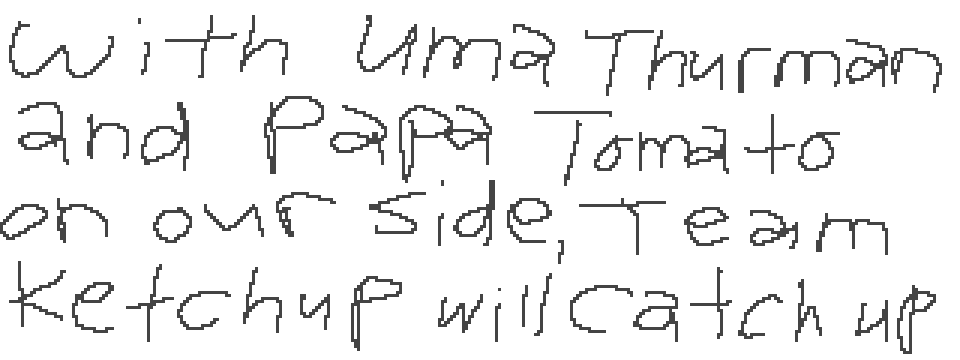 with Uma Thurman
and Papa Tomato
on our side, Team
Ketchup will catch up